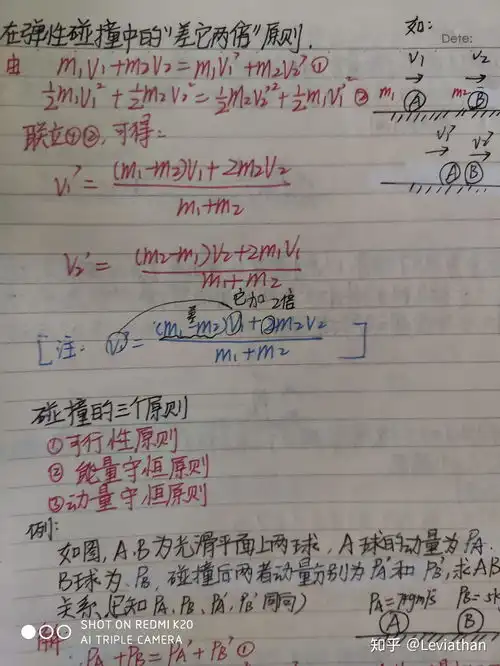 在弹性碰撞中的"差它两倍"原则.
如:
Date:
由 m₁v₁+m₂v₂=m₁v₁'+m₂v₂' ①
½m₁v₁²+½m₂v₂²=½m₂v₂'²+½m₁v₁'² ②
v₁ v₂
m₁ A m₂ B
联立①②,可得:
v₁' v₂'
A B
v₁'=(m₁-m₂)v₁+2m₂v₂
m₁+m₂
v₂'=(m₂-m₁)v₂+2m₁v₁
m₁+m₂
差 它加2倍
[注: v₁'=(m₁-m₂)v₁+2m₂v₂ ]
m₁+m₂
碰撞的三个原则
①可行性原则
② 能量守恒原则
③动量守恒原则
例:
如图,A.B为光滑平面上两球,A球的动量为PA.
B球为PB,碰撞后两者动量分别为PA'和PB',求AB
关系.(已知PA、PB、PA'、PB'同向)
PA=7kgm/s PB=5k
A B
解:
PA+PB=PA'+PB' ①
SHOT ON REDMI K20
AI TRIPLE CAMERA
知乎 @Leviathan